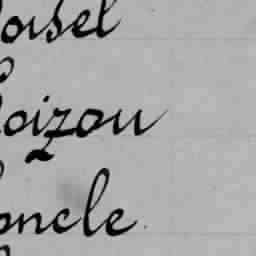 oisel
oizou
oncle